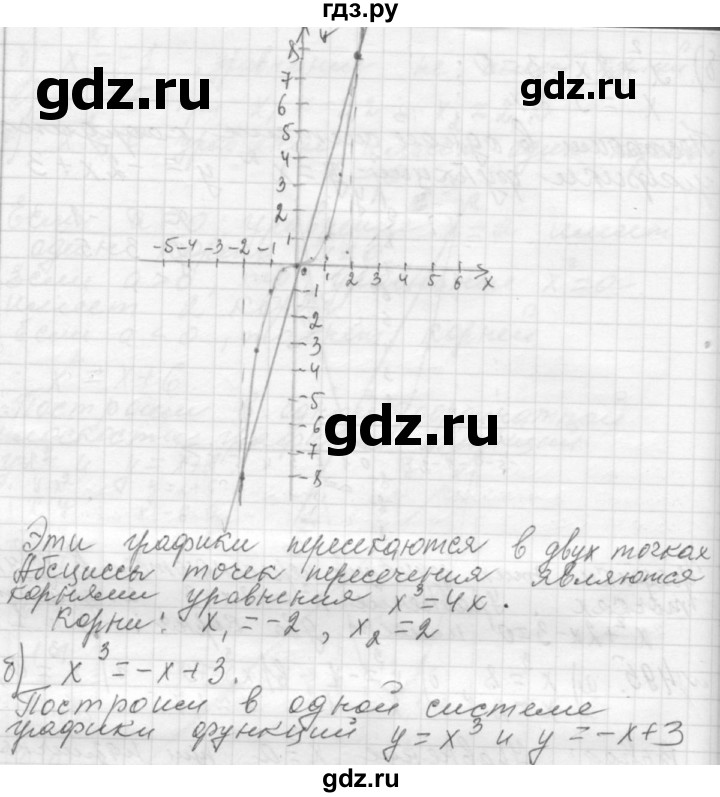 гдз.ру
y
8
7
6
5
4
3
2
1
-5 -4 -3 -2 -1 0 1 2 3 4 5 6 x
-1
-2
-3
-4
-5
-6
-7
-8
gdz.ru
gdz.ru
gdz.ru
Эти графики пересекаются в двух точках
Абсциссы точек пересечения являются
корнями уравнения x³=4x.
Корни: x₁=-2, x₂=2
б) x³=-x+3.
Построим в одной системе
графики функций y=x³ и y=-x+3
gdz.ru